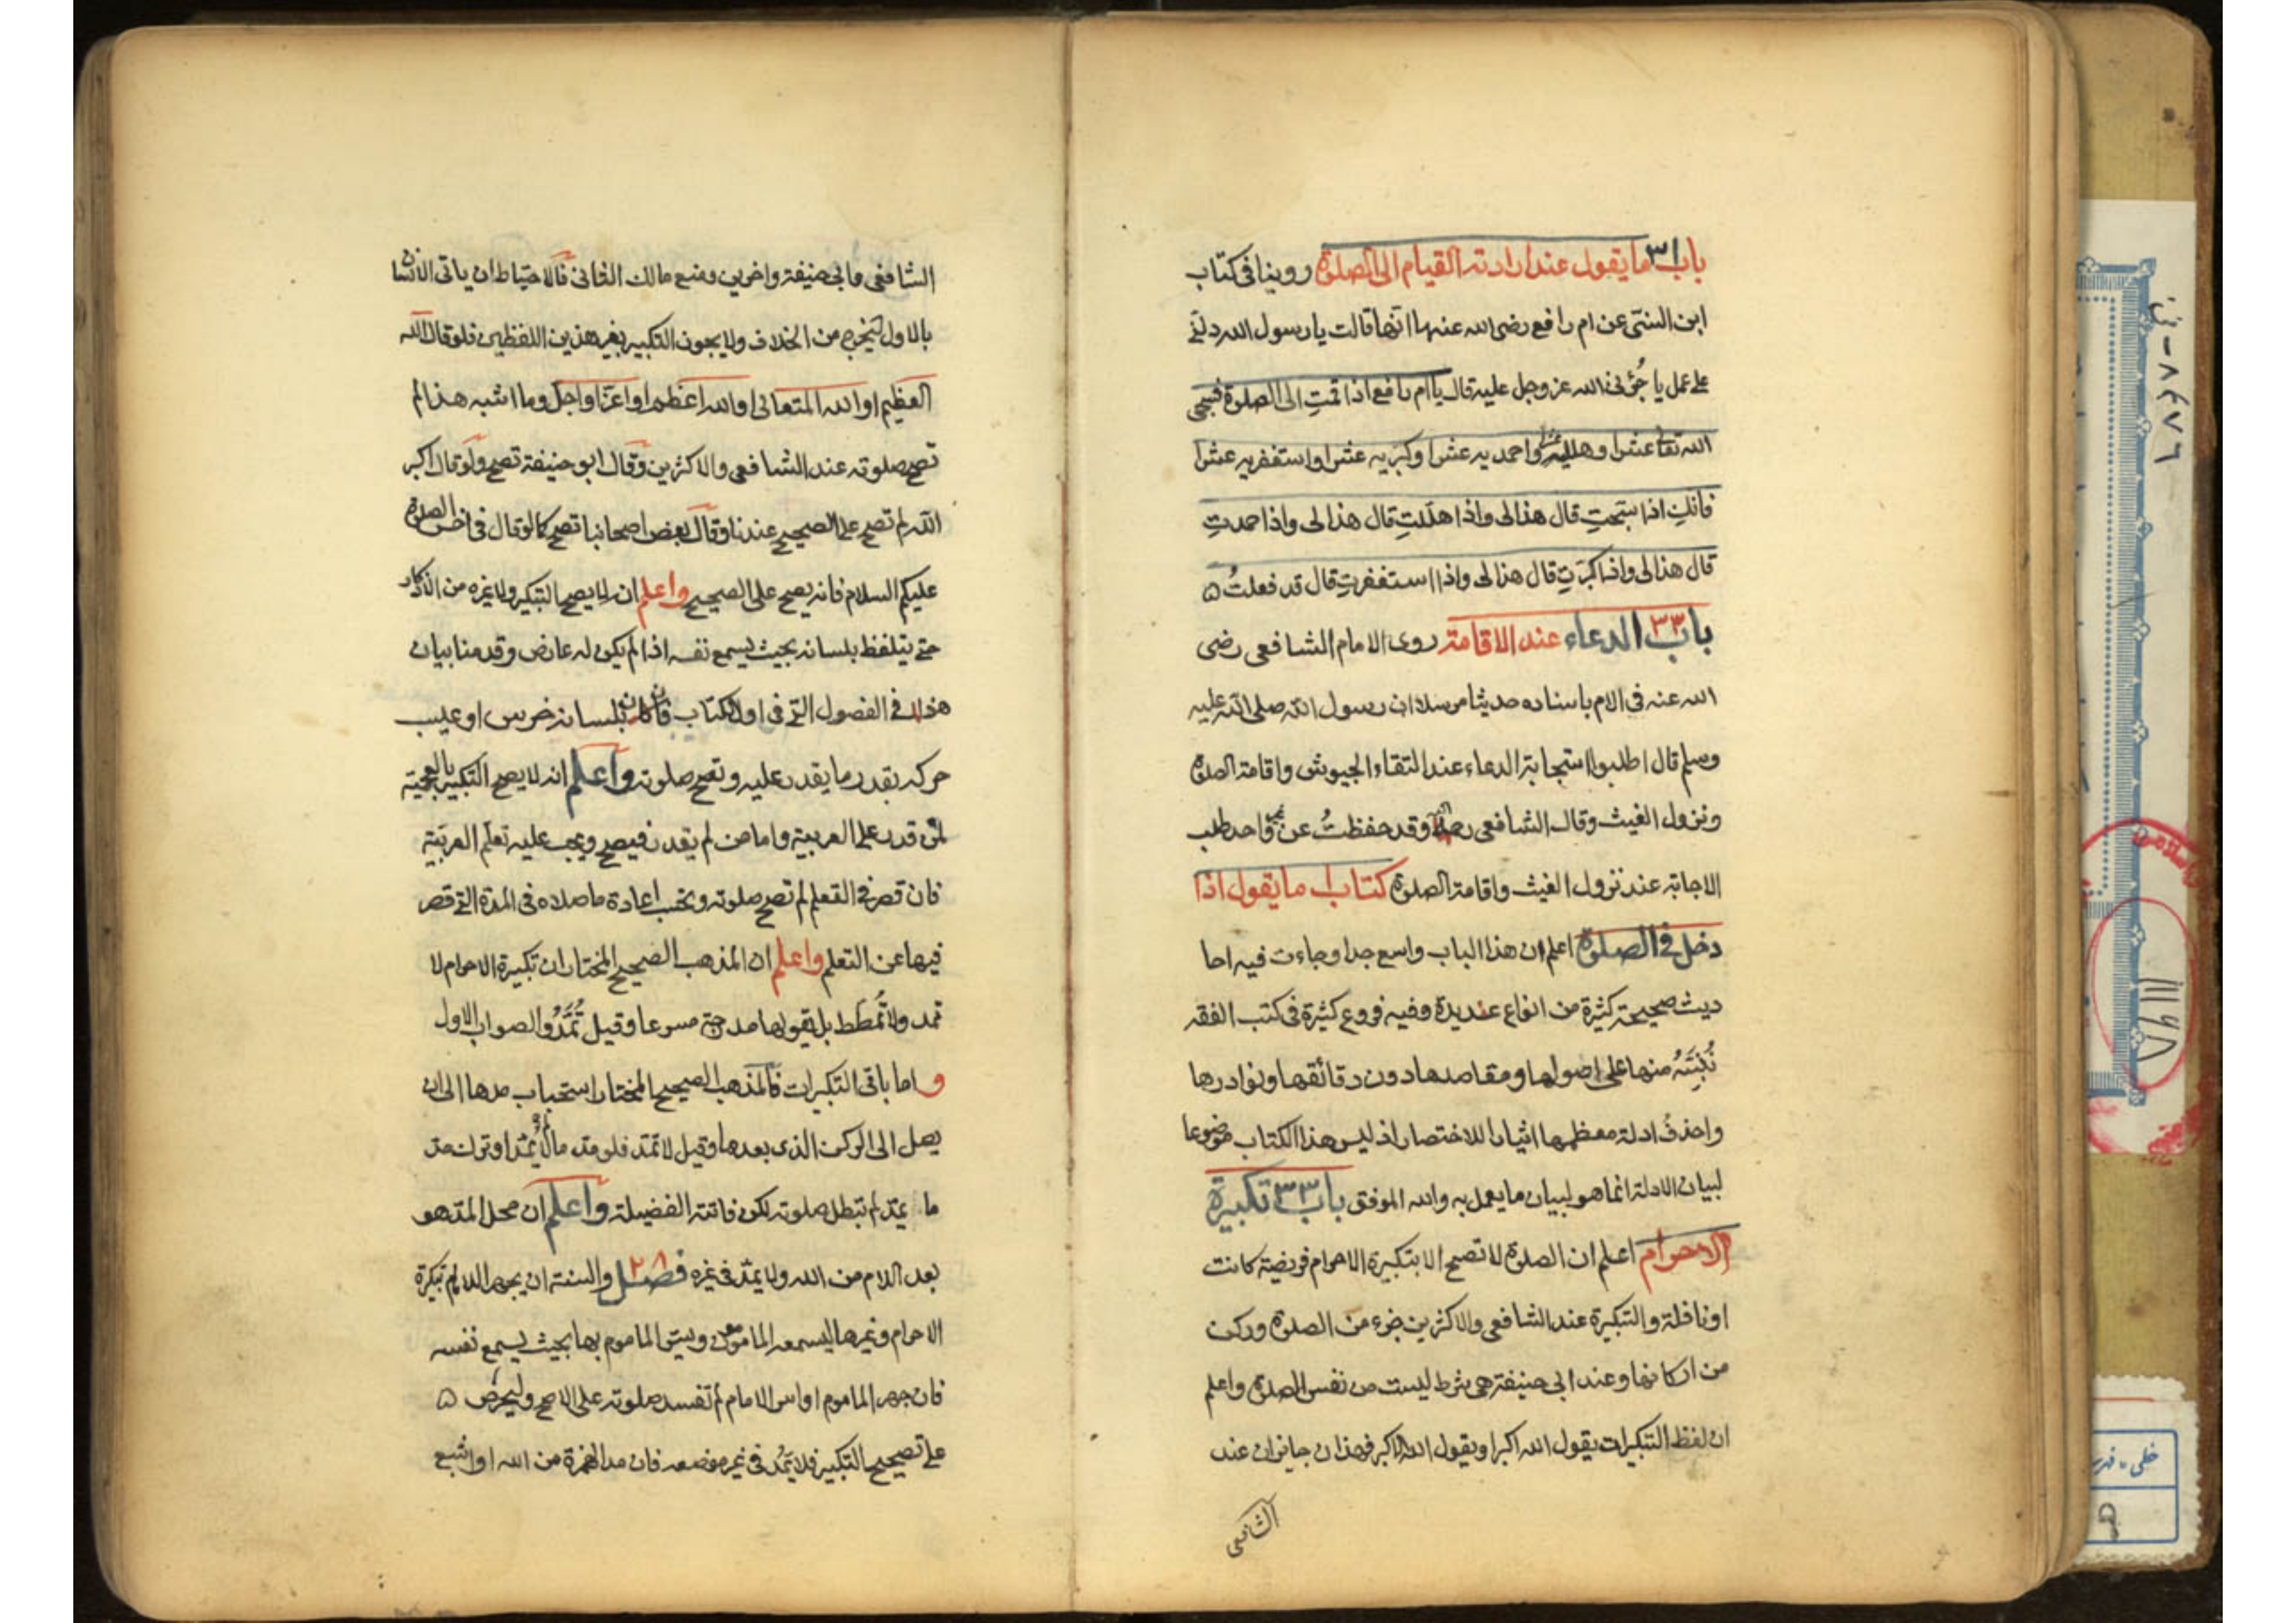 باب ٣١ ما يقول عند ارادته القيام الى الصلوة روينا فى كتاب
ابن السنى عن ام رافع رضى الله عنها انها قالت يا رسول الله دلنى
على عمل ياجُرُنى الله عز وجل عليه قال يا ام رافع اذا قمتِ الى الصلوة فسبحى
الله تعالى عشرا وهلليه عشرا واحمديه عشرا وكبريه عشرا واستغفريه عشرا
فانكِ اذا سبحتِ قال هذا لى واذا هللتِ قال هذا لى واذا حمدتِ
قال هذا لى واذا كبرتِ قال هذا لى واذا استغفرتِ قال قد فعلتُ ه
باب ٣٢ الدعاء عند الاقامة روى الامام الشافعى رضى
الله عنه فى الام باسناده حديثا مرسلا ان رسول الله صلى الله عليه
وسلم قال اطلبوا استجابة الدعاء عند التقاء الجيوش واقامة الصلوة
ونزول الغيث وقال الشافعى وقد حفظتُ عن غير واحد طلب
الاجابة عند نزول الغيث واقامة الصلوة كتاب ما يقول اذا
دخل فى الصلوة اعلم ان هذا الباب واسع جدا وجاءت فيه احا
ديث صحيحة كثيرة من انواع عديدة وفيه فروع كثيرة فى كتب الفقه
نُنَبِّهُ منها على اصولها ومقاصدها دون دقائقها ونوادرها
واحذفُ ادلة معظمها ايثارا للاختصار اذ ليس هذا الكتاب موضوعا
لبيان الادلة انما هو لبيان ما يعمل به والله الموفق باب ٣٣ تكبيرة
الاحرام اعلم ان الصلوة لا تصح الا بتكبيرة الاحرام فريضة كانت
او نافلة والتكبيرة عند الشافعى والاكثرين جزء من الصلوة وركن
من اركانها وعند ابى حنيفة هى شرط ليست من نفس الصلوة واعلم
ان لفظ التكبيرات يقول الله اكبر او يقول الله الاكبر فهذان جايزان عند
الشافعى
الشافعى وابى حنيفة واخرين ومنع مالك الثانى فالاحتياط ان ياتى الانسان
بالاول ليخرج من الخلاف ولا يجوز التكبير بغير هذين اللفظين فلو قال الله
العظيم او الله المتعالى او الله اعظم او اعز او اجل وما اشبه هذا لم
تصح صلوته عند الشافعى والاكثرين وقال ابو حنيفة تصح ولو قال اكبر
الله لم تصح على الصحيح عندنا وقال بعض اصحابنا تصح كما لو قال فى اخر الصلوة
عليكم السلام فانه يصح على الصحيح واعلم انه لا يصح التكبير ولا غيره من الاذكار
حتى يتلفظ بلسانه بحيث يسمع نفسه اذا لم يكن له عارض وقد منا بيان
هذا فى الفصول التى فى اول الكتاب فان كان بلسانه خرس او عيب
حركه بقدر ما يقدر عليه وتصح صلوته واعلم انه لا يصح التكبير بالعجمية
لمن قدر على العربية واما من لم يقدر فيصح ويجب عليه تعلم العربية
فان قصر فى التعلم لم تصح صلوته وتجب اعادة ما صلاه فى المدة التى قصر
فيها عن التعلم واعلم ان المذهب الصحيح المختار ان تكبيرة الاحرام لا
تمد ولا تُمَطط بل يقولها مدرجة مسرعا وقيل تُمَدُّ والصواب الاول
واما باقى التكبيرات فالمذهب الصحيح المختار استحباب مدها الى ان
يصل الى الركن الذى بعدها وقيل لا تمد فلو مد ما لا يُمدّ او ترك مد
ما يمد لم تبطل صلوته لكن فاتته الفضيلة واعلم ان محل المد هو
بعد اللام من الله ولا يمد فى غيره فصل ٢٨ والسنة ان يجهر الامام بتكبيرة
الاحرام وغيرها ليسمعه المامومون ويسر الماموم بها بحيث يسمع نفسه
فان جهر الماموم او اسر الامام لم تفسد صلوته على الاصح وليحرص ه
على تصحيح التكبير فلا يَمُد فى غير موضعه فان مد الهمزة من الله او اشبع